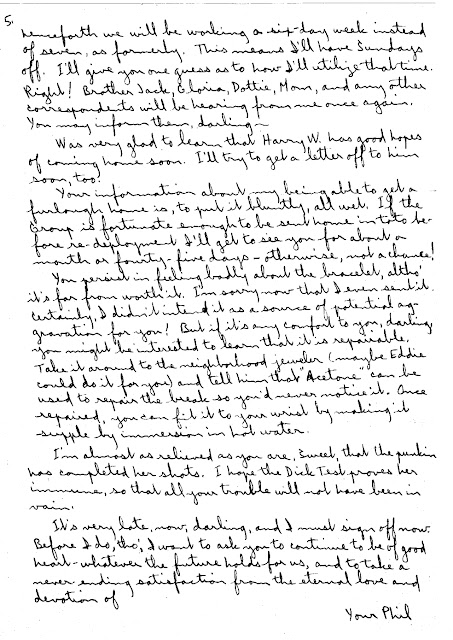 5.
henceforth we will be working a six-day week instead
of seven, as formerly. This means I'll have Sundays
off. I'll give you one guess as to how I'll utilize that time.
Right! Brother Jack, Gloria, Dottie, Mom, and any other
correspondents will be hearing from me once again.
You may inform them, darling—
Was very glad to learn that Harry W. has good hopes
of coming home soon. I'll try to get a letter off to him
soon, too!
Your information about my being able to get a
furlough home is, to put it bluntly, all wet. If the
Group is fortunate enough to be sent home in toto be-
fore re-deployment I'll get to see you for about a
month or fourty-five days – otherwise, not a chance!
You persist in feeling badly about the bracelet, altho'
it's far from worth it. I'm sorry now that I even sent it.
Certainly, I didn't intend it as a source of potential ag-
gravation for you! But if it's any comfort to you, darling,
you might be interested to learn that it is repairable.
Take it around to the neighborhood jeweler (maybe Eddie
could do it for you) and tell him that "Acetone" can be
used to repair the break so you'd never notice it. Once
repaired, you can fit it to your wrist by making it
supple by immersion in hot water.
I'm almost as relieved as you are, Sweet, that the punkin
has completed her shots. I hope the Dick Test proves her
immune, so that all your trouble will not have been in
vain.
It's very late, now, darling, and I must sign off now.
Before I do, tho', I want to ask you to continue to be of good
heart – whatever the future holds for us, and to take a
never ending satisfaction from the eternal love and
devotion of
Your Phil